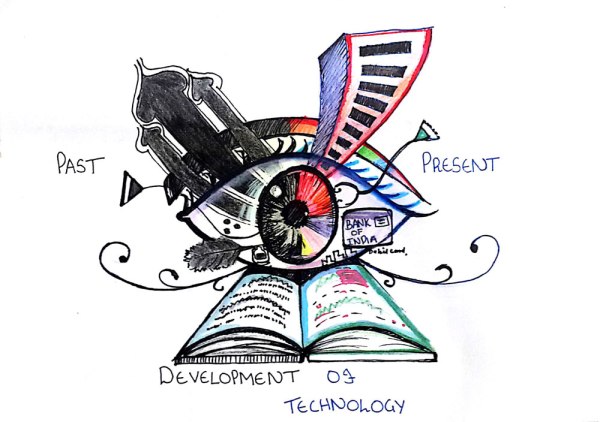 PAST
PRESENT
BANK
OF
INDIA
Debit card.
DEVELOPMENT OF
TECHNOLOGY